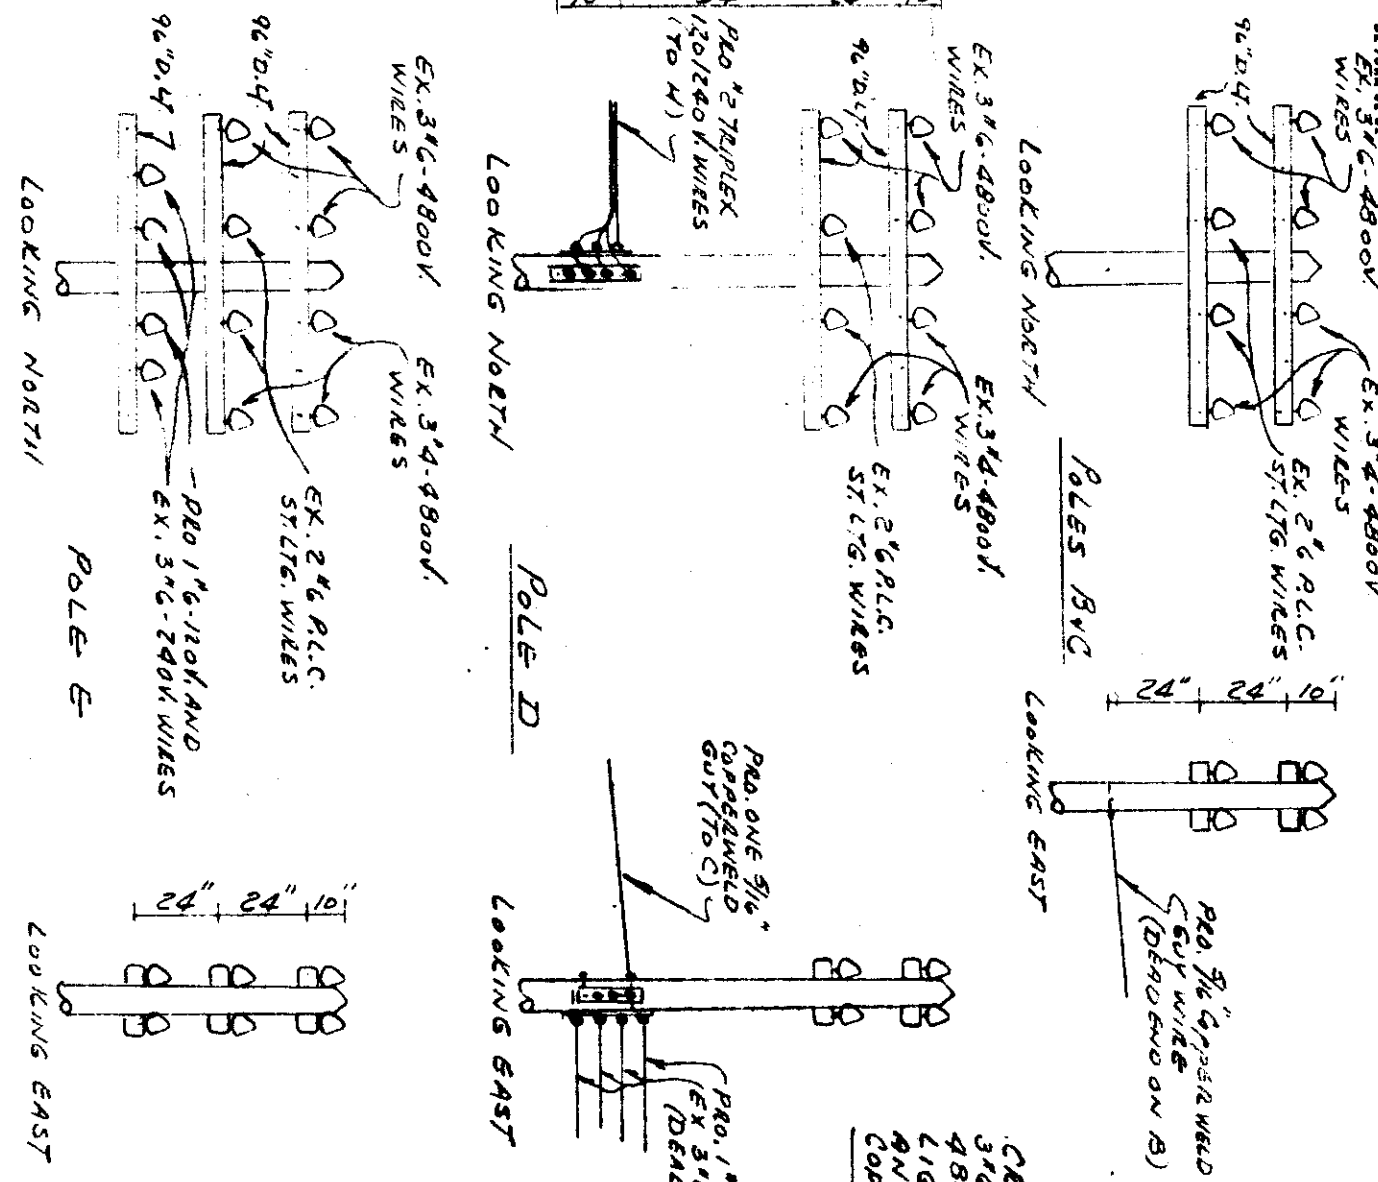 EX. 3#6-4800V
WIRES
96"D.4.
EX. 3#4-4800V
WIRES
EX. 2#6 P.L.C.
ST. LTG. WIRES
LOOKING NORTH
POLES B&C
24" 24" 10"
PRO. 5/16" COPPERWELD
GUY WIRE
(DEADEND ON B)
LOOKING EAST
EX. 3#6-4800V.
WIRES
96"D.4.
EX. 3#4-4800V.
WIRES
EX. 2#6 P.L.C.
ST. LTG. WIRES
PRO #2 TRIPLEX
120/240V. WIRES
(TO H)
LOOKING NORTH
POLE D
PRO. ONE 5/16"
COPPERWELD
GUY (TO C)
PRO. 1#
EX 3#
(DEA
LOOKING EAST
CR
3#6
48
LIG
AN
COP
EX. 3#6-4800V.
WIRES
96"D.4.
96"D.4.
EX. 3#4-4800V.
WIRES
EX. 2#6 P.L.C.
ST. LTG. WIRES
PRO 1#6-120V. AND
EX. 3#6-240V. WIRES
LOOKING NORTH
POLE E
24" 24" 10"
LOOKING EAST